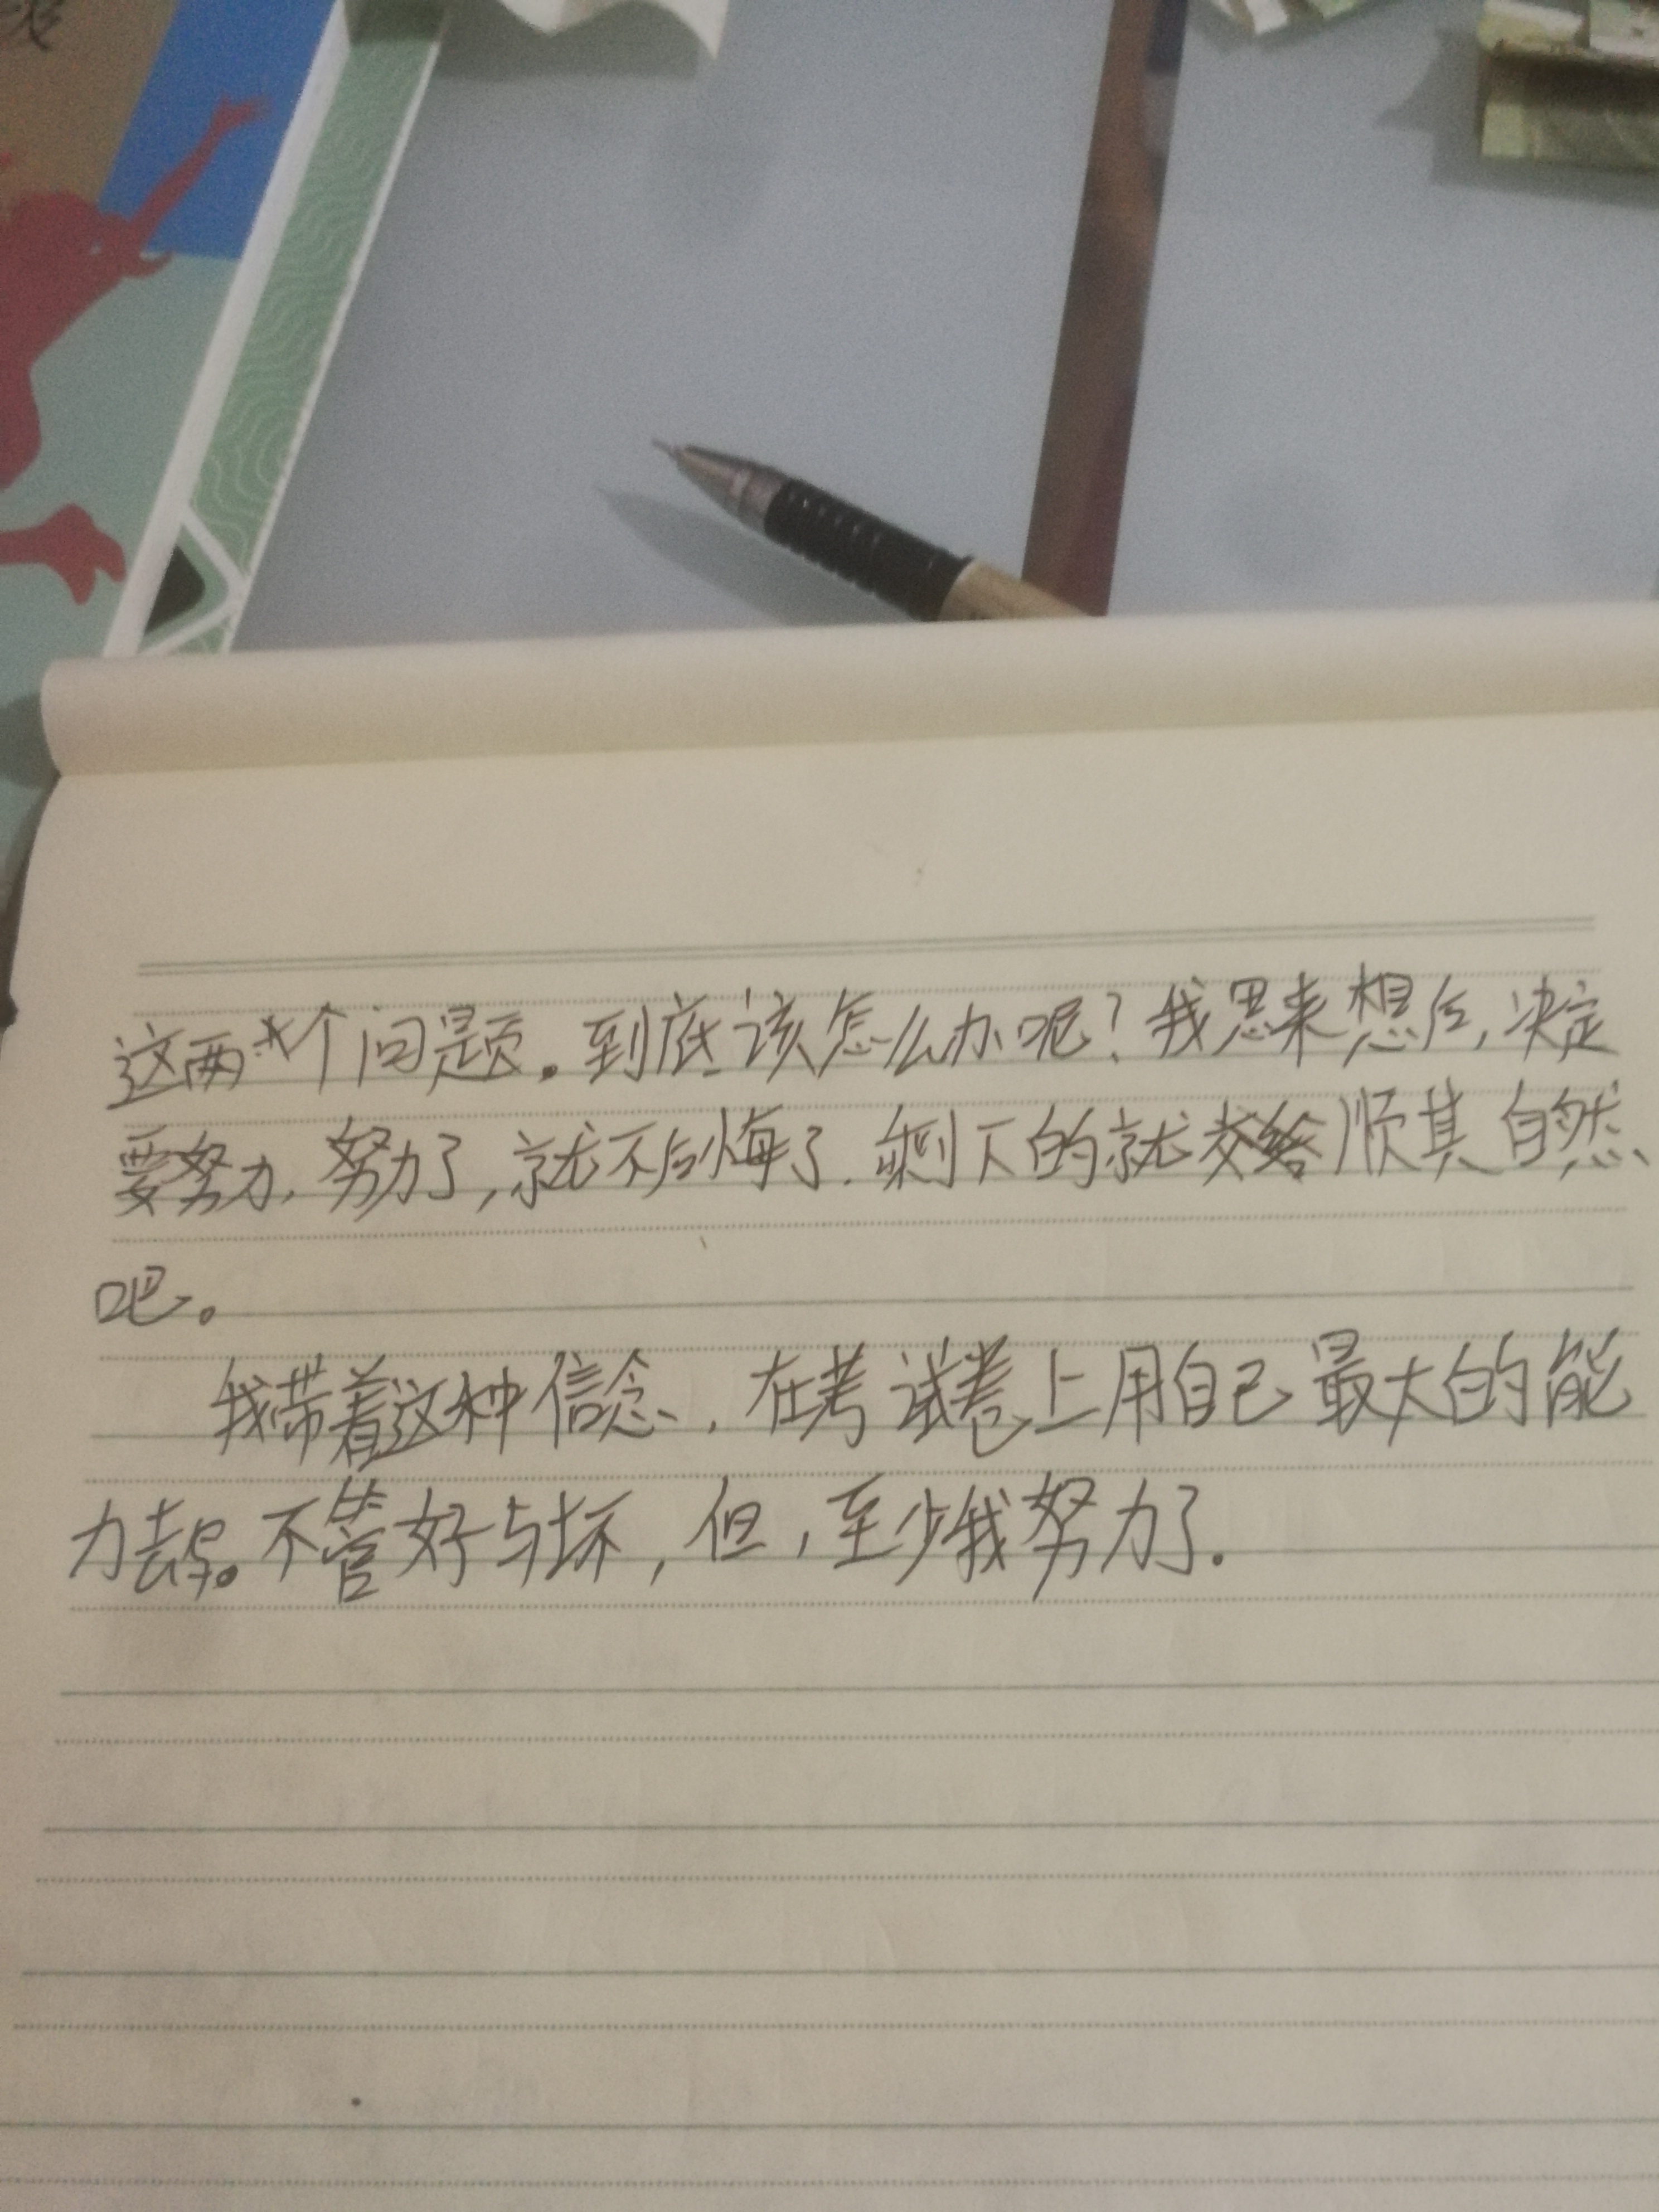 这两个问题。到底该怎么办呢？我思来想后，决定
要努力，努力了，就不后悔了．剩下的就交给顺其自然
吧。
我带着这种信念，在考试卷上用自己最大的能
力去写。不管好与坏，但，至少我努力了．